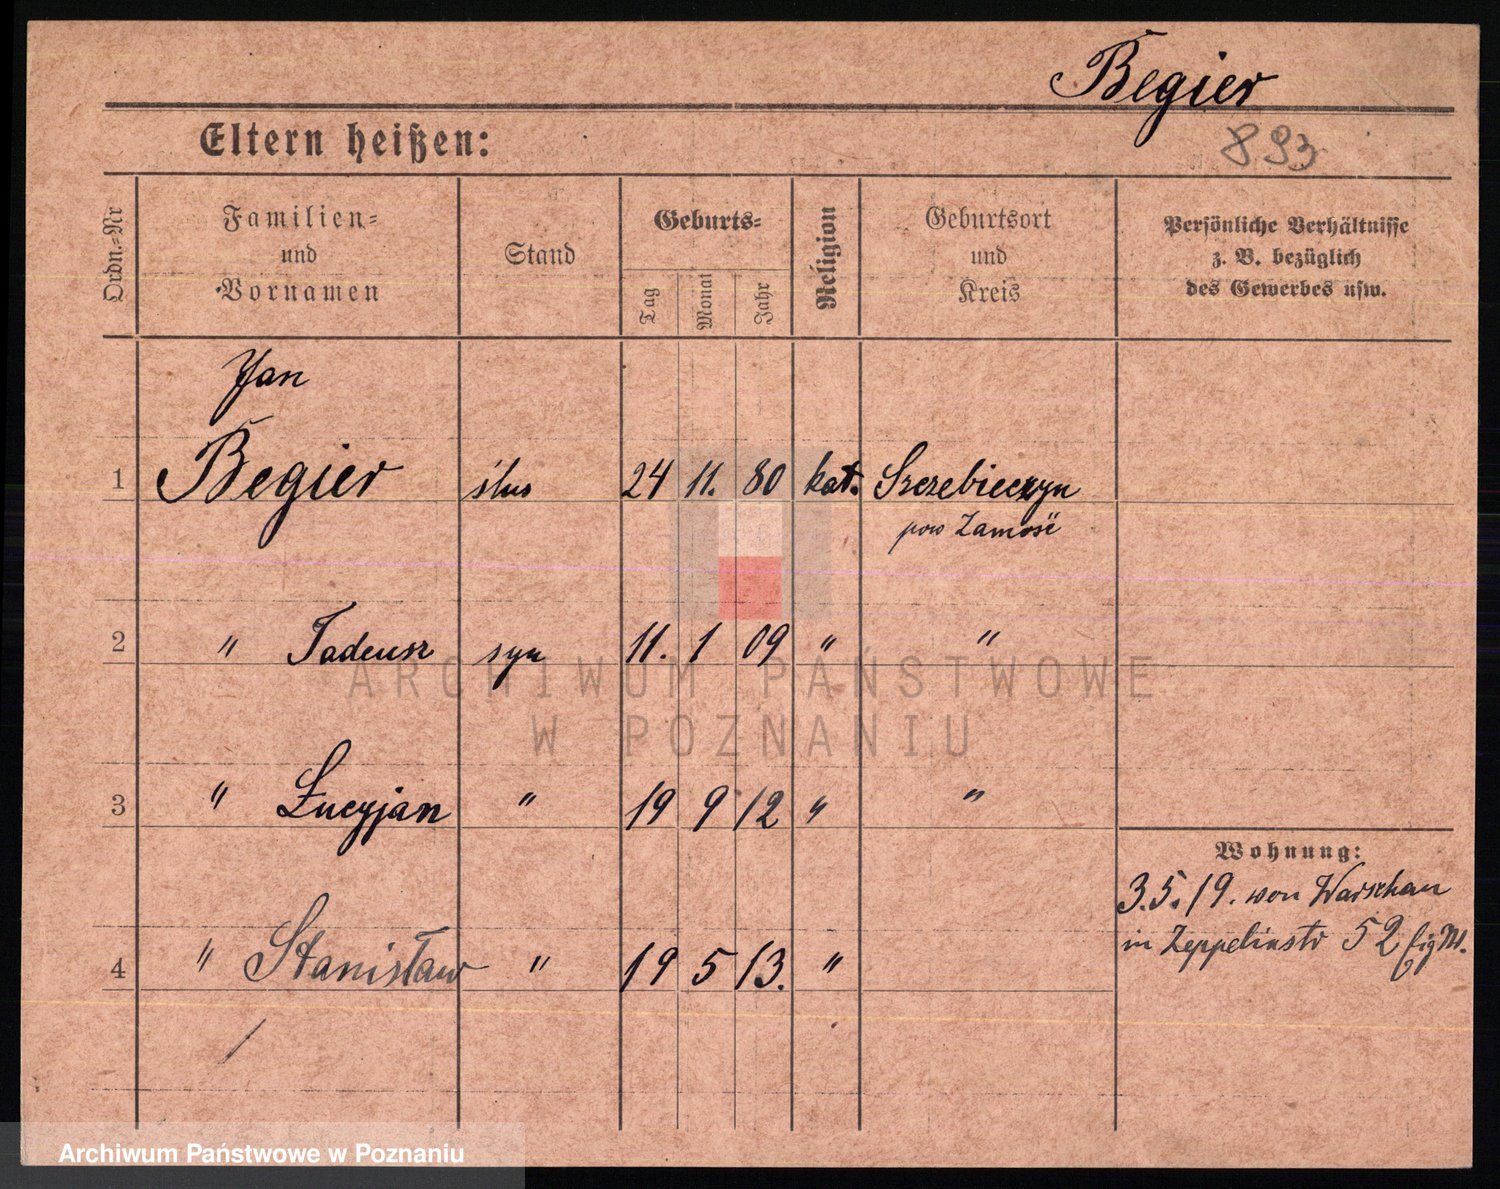 Begier
893
Eltern heißen:
Ordn.=Nr
Familien=
und
Vornamen
Stand
Geburts=
Tag
Monat
Jahr
Religion
Geburtsort
und
Kreis
Persönliche Verhältnisse
z. B. bezüglich
des Gewerbes usw.
Jan
1 Begier ślus 24 11. 80 kat. Szczebieczyn
pow Zamość
2 " Tadeusz syn 11. 1 09 " "
3 " Łucyjan " 19 9 12 " "
4 " Stanisław " 19 5 13. "
Wohnung:
3.5.19. von Warschau
in Zeppelinstr 52
ARCHIWUM PAŃSTWOWE
W POZNANIU
Archiwum Państwowe w Poznaniu